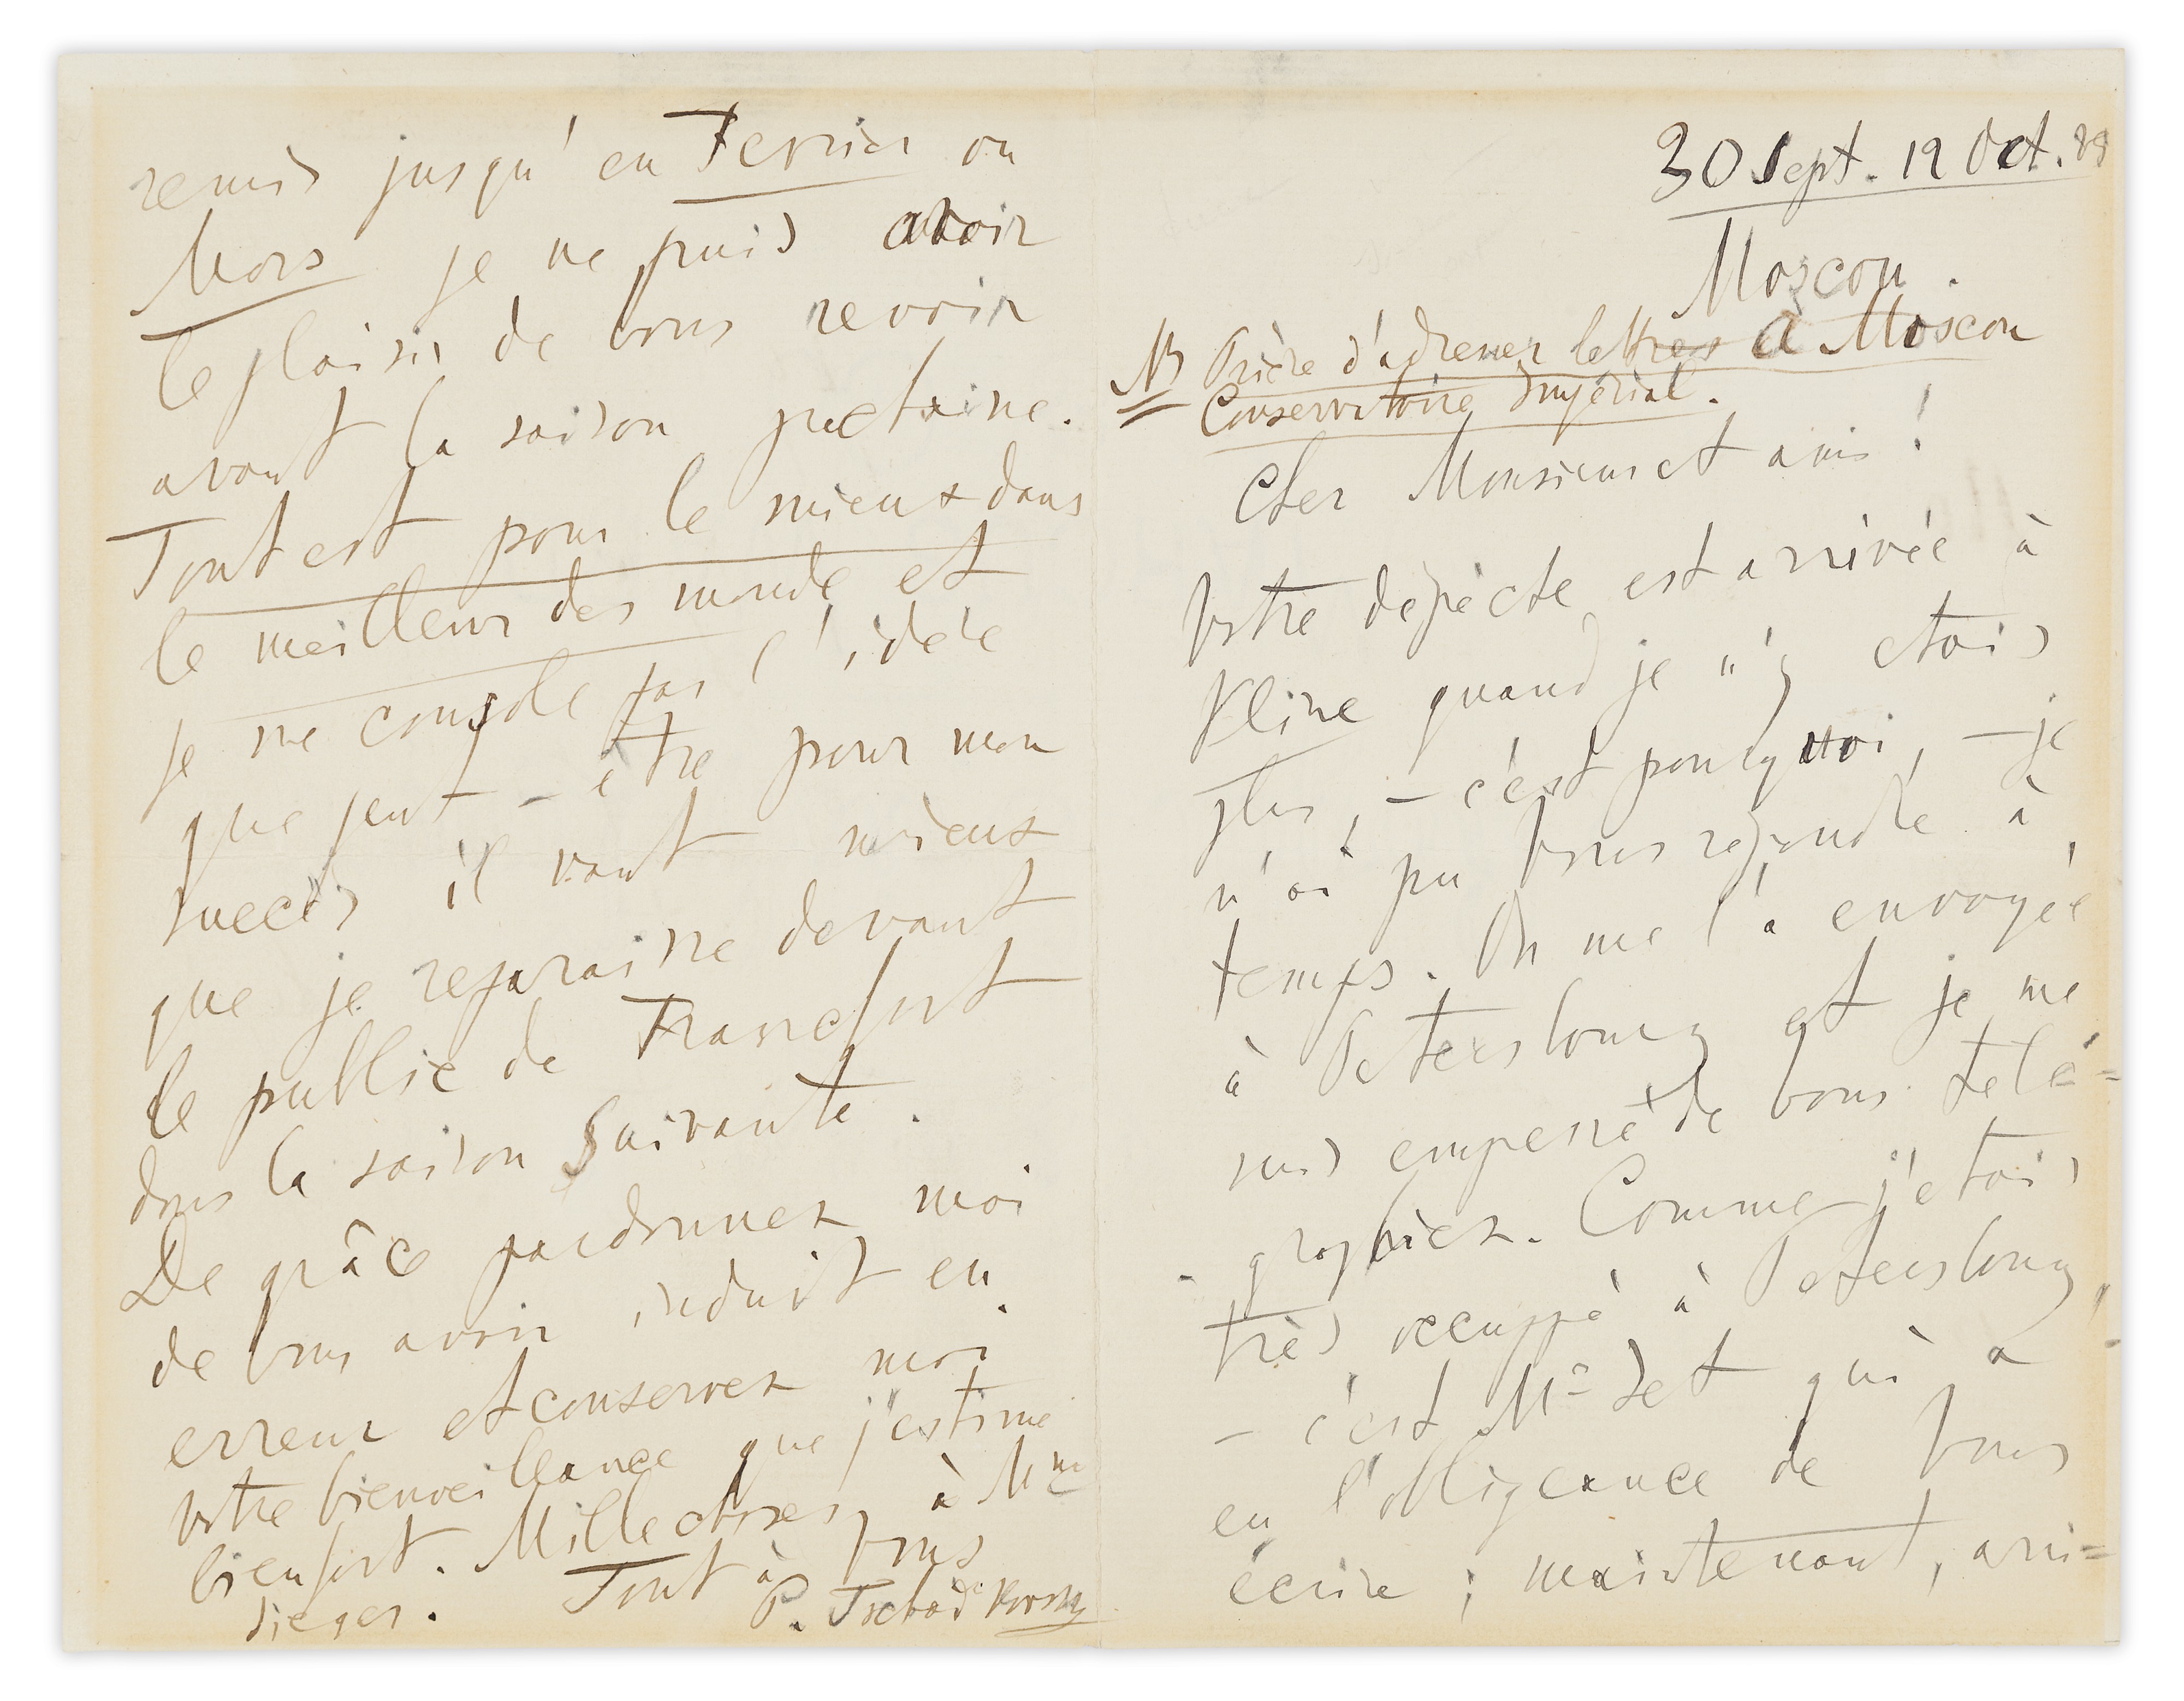 30 Sept. 12 Oct. 89
Moscou.
NB Prière d'adresser lettres à Moscou
Conservatoire Impérial.
Cher Monsieur et ami!
Votre dépèche est arrivée à
Kline quand je n'y etais
plus, – c'est pourquoi, – je
n'ai pu Vous repondre à
temps. On me l'a envoyée
à Petersbourg et je me
suis empessé de vous télé-
-graphier. Comme j'etais
très occuppé à Petersbourg,
– c'est Mr Set qui a
eu l'obligeance de Vous
écrire; maintenant, arri-
remis jusqu'en Fevrier ou
Mars je ne puis avoir
le plaisir de Vous revoir
avant la saison prochaine.
Tout est pour le mieux dans
le meilleur des monde et
je me console par l'ideée
que peut-être pour mon
succès il vaut mieux
que je reparaisse devant
le public de Francfort
dans la saison suivante.
De grâce pardonnez moi
de Vous avoir induit en
erreur et conservez moi
votre bienveillance que j'estime
bien fort. Mille choses à Mme
Sieger. Tout à Vous
P. Tschaïkovsky